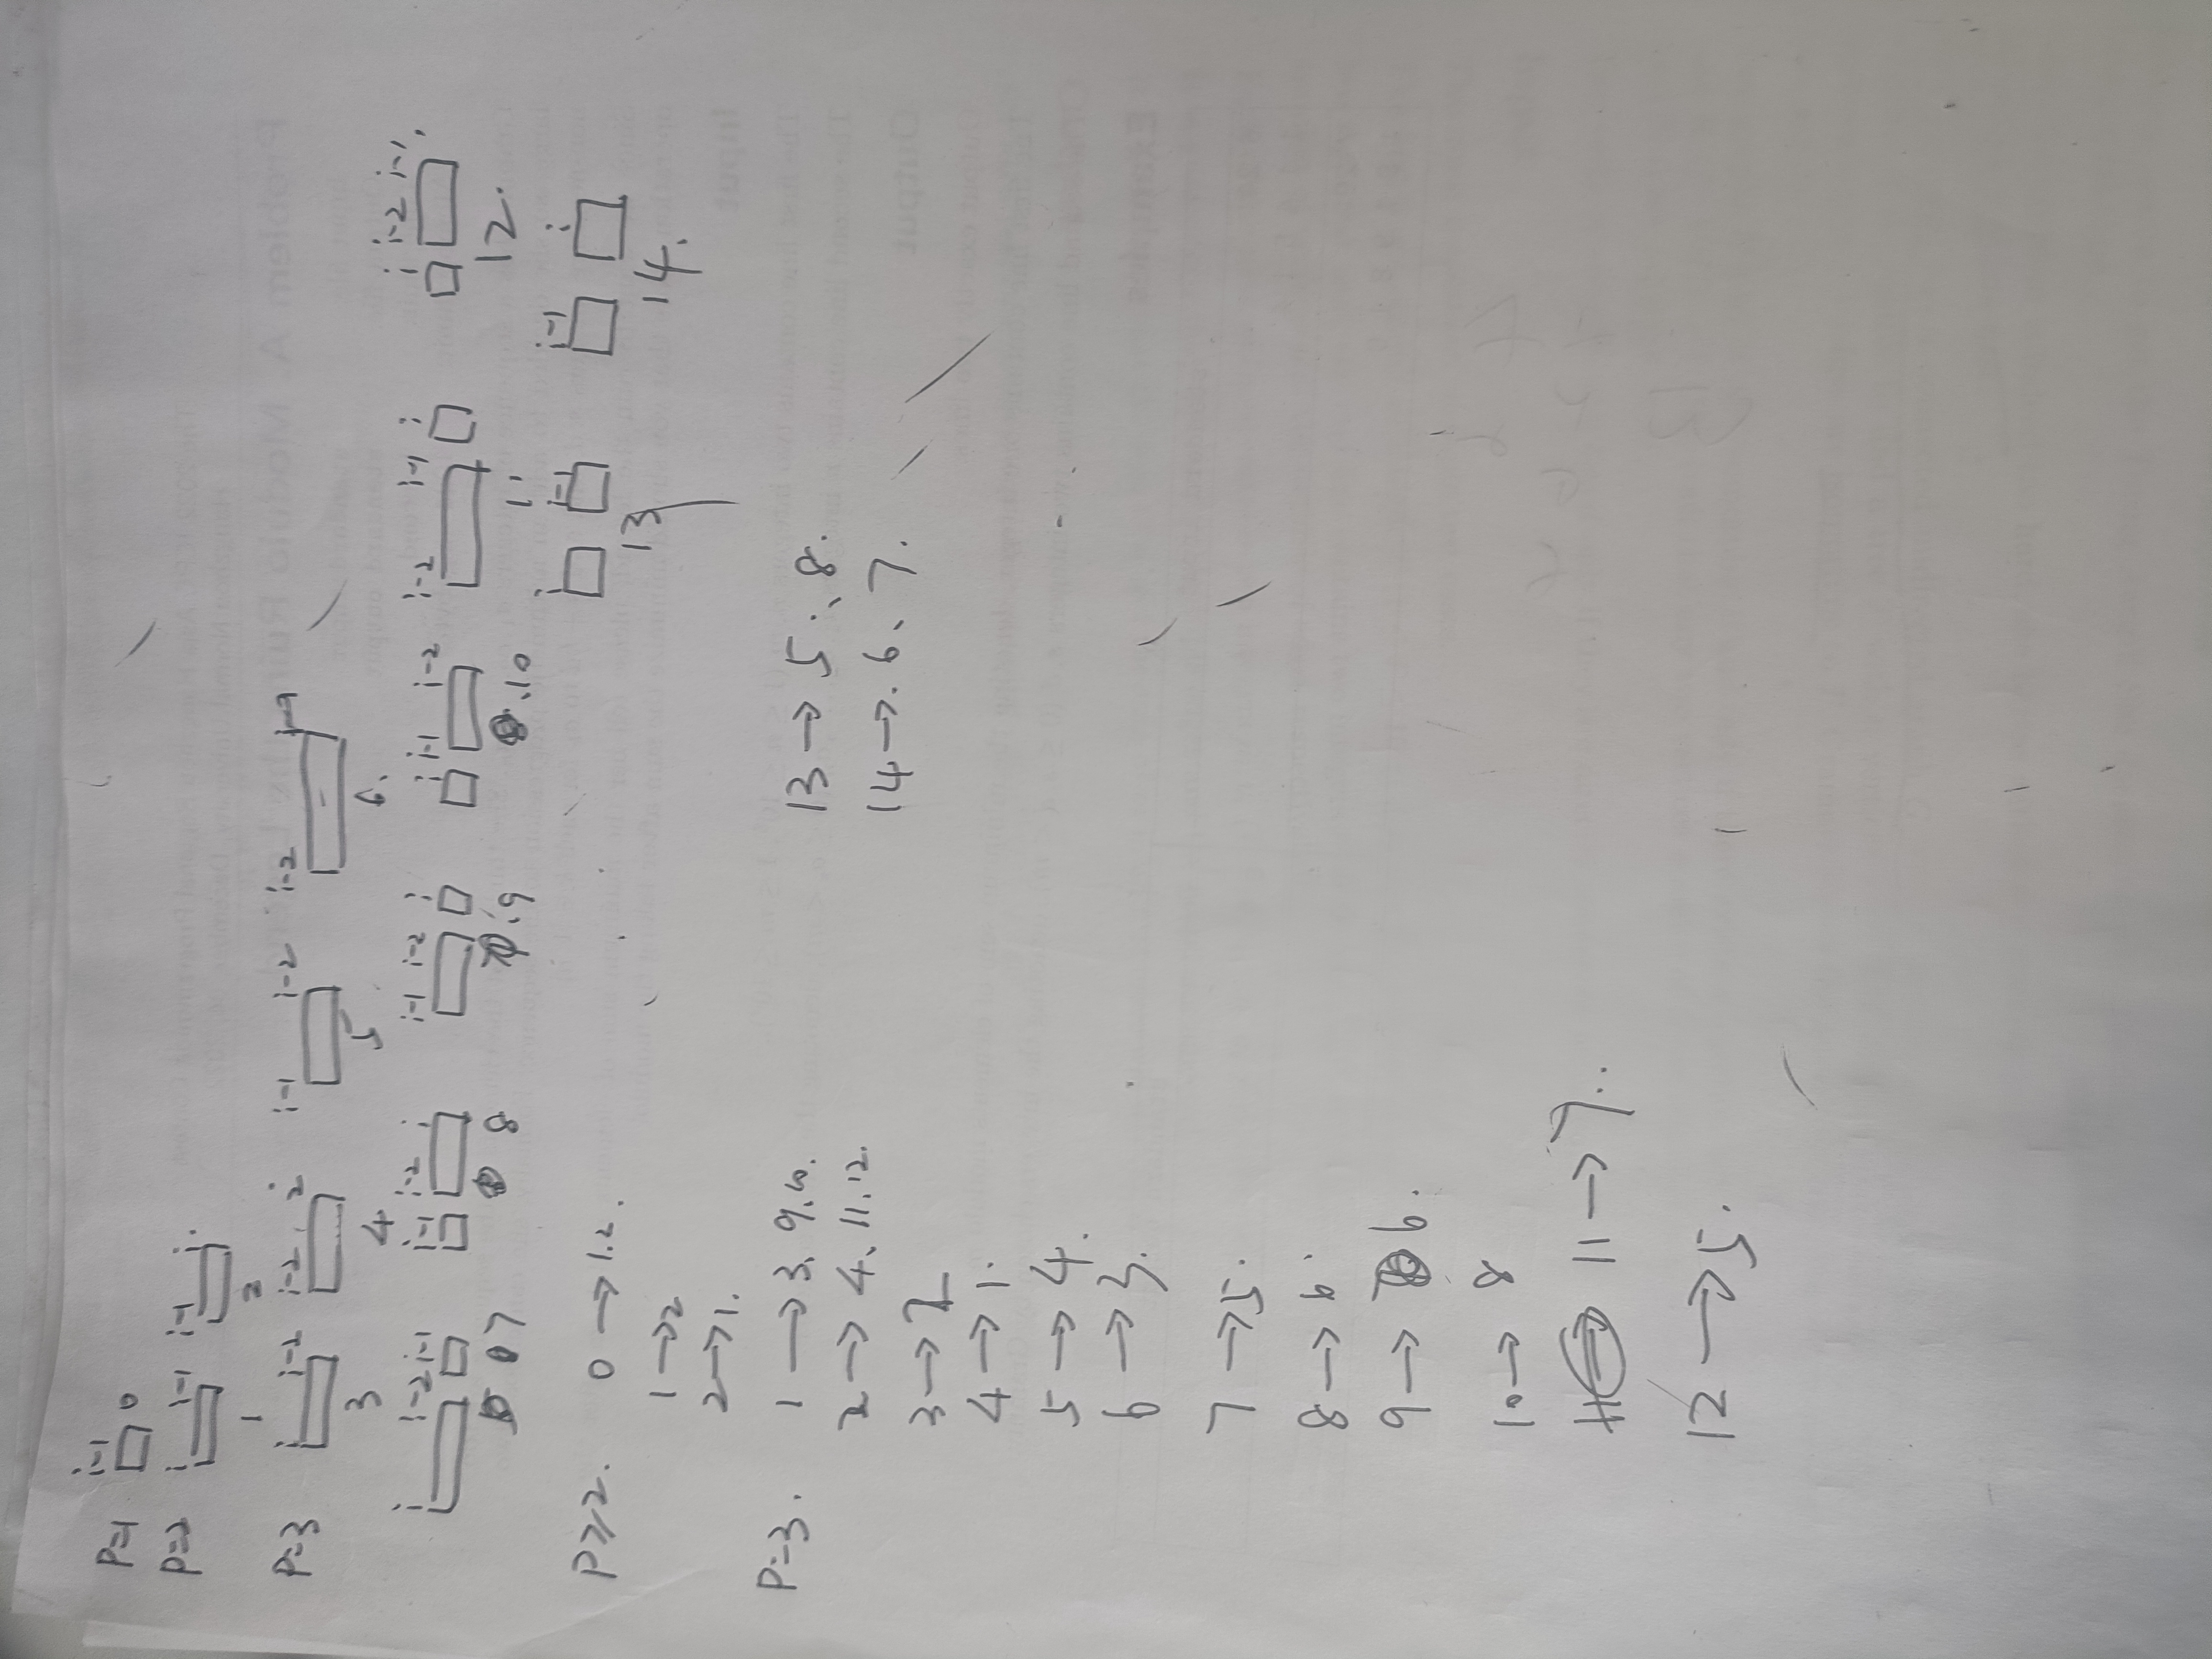 P=1 i-1 0
P=2 i i-1 1 i-1 i 2
P=3 i i-2 3 i-2 i 4 i-1 i-2 5 i-2 i-1 6.
i i-2 i-1 7 i-1 i-2 i 8 i-1 i-2 i 9 i i-1 i-2 10 i-2 i-1 i 11 i i-2 i-1 12.
i i-1 13 i-1 i 14.
P≥2. 0→1.2.
1→2
2→1.
P=3. 1→3、9、10.
2→4、11.12.
3→2
4→1.
5→4.
6→3.
7→5.
8→6.
9→6.
10→8
11→7.
12→5.
13→5、8.
14→6、7.